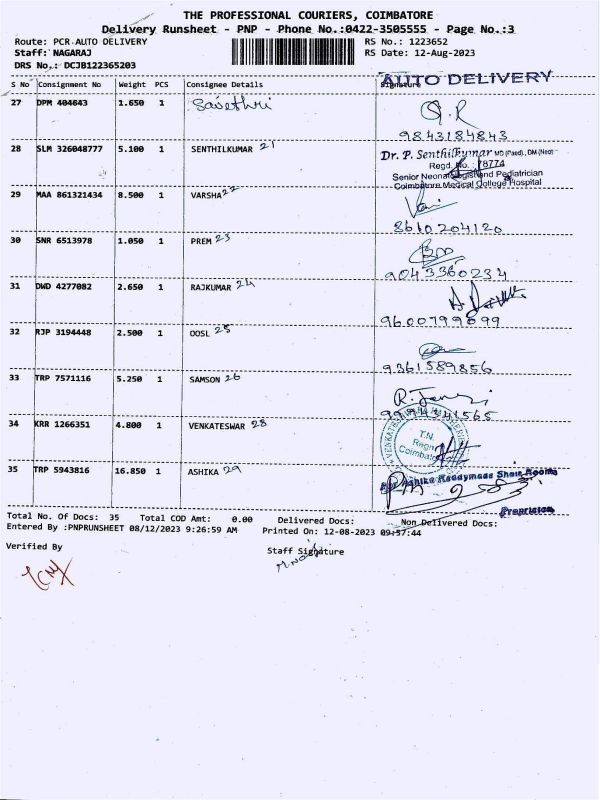 THE PROFESSIONAL COURIERS, COIMBATORE
Delivery Runsheet - PNP - Phone No.:0422-3505555 - Page No.:3
Route: PCR AUTO DELIVERY RS No.: 1223652
Staff: NAGARAJ RS Date: 12-Aug-2023
DRS No.: DCJB122365203
AUTO DELIVERY
S No Consignment No Weight PCS Consignee Details Signature
27 DPM 404643 1.650 1 Savethri
9843184843
28 SLM 326048777 5.100 1 SENTHILKUMAR 21
Dr. P. Senthilkumar MD (Paed)., DM (Neo)
Regd. No. : 78774
Senior Neonatologist and Pediatrician
Coimbatore Medical College Hospital
29 MAA 861321434 8.500 1 VARSHA 22
8610204120
30 SNR 6513978 1.050 1 PREM 23
9043360234
31 DWD 4277082 2.650 1 RAJKUMAR 24
9600799699
32 RJP 3194448 2.500 1 OOSL 25
9361589856
33 TRP 7571116 5.250 1 SAMSON 26
34 KRR 1266351 4.800 1 VENKATESWAR 28
T.N.
35 TRP 5943816 16.850 1 ASHIKA 29
For Ashika Readymade Show Rooms
Proprietor
Total No. Of Docs: 35 Total COD Amt: 0.00 Delivered Docs: Non Delivered Docs:
Entered By :PNPRUNSHEET 08/12/2023 9:26:59 AM Printed On: 12-08-2023 09:37:44
Verified By Staff Signature